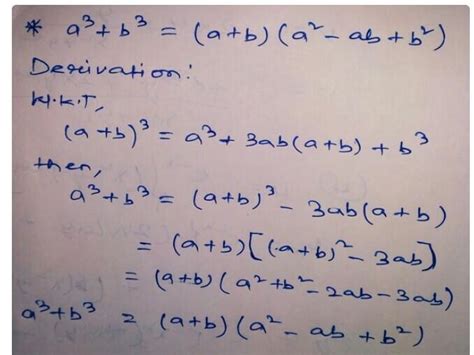 * a³ + b³ = (a+b) (a² - ab + b²)
Derivation:
W.K.T,
(a+b)³ = a³ + 3ab(a+b) + b³
then,
a³+b³ = (a+b)³ - 3ab(a+b)
= (a+b)[(a+b)² - 3ab]
= (a+b)(a²+b² - 2ab - 3ab)
a³+b³ = (a+b)(a² - ab + b²)